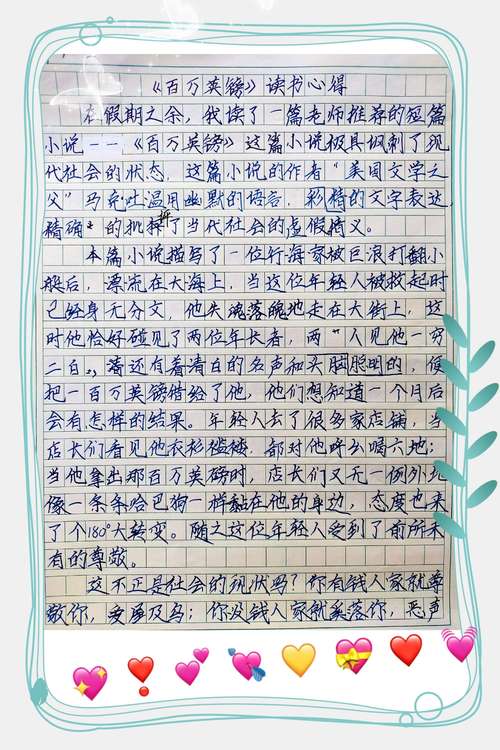 《百万英镑》读书心得
在假期之余，我读了一篇老师推荐的短篇
小说——《百万英镑》这篇小说极具讽刺了现
代社会的状态，这篇小说的作者"美国文学之
父"马克吐温用幽默的语言，彩精的文字表达
精确的批择了当代社会的虚假捎义。
本篇小说描写了一位行海家被巨浪打翻小
船后，漂流在大海上，当这位年轻人被救起时
己经身无分文，他失魂落魄地走在大街上，这
时他恰好碰见了两位年长者，两人见他一穷
二白，着还有着清白的名声和头脑聪明的，便
把一百万英镑借给了他，他们想知道一个月后
会有怎样的结果。年轻人去了很多家店铺，当
店长们看见他衣衫褴褛，都对他呼幺喝六地；
当他拿出那百万英磅时，店长们又无一例外地
像一条条哈巴狗一样黏在他的身边，态度也来
了个180°大转变。随之这位年轻人受到了前所未
有的尊敬。
这不正是社会的现状吗？你有钱人家就尊
敬你，爱屋及乌；你没钱人家就奚落你，恶声